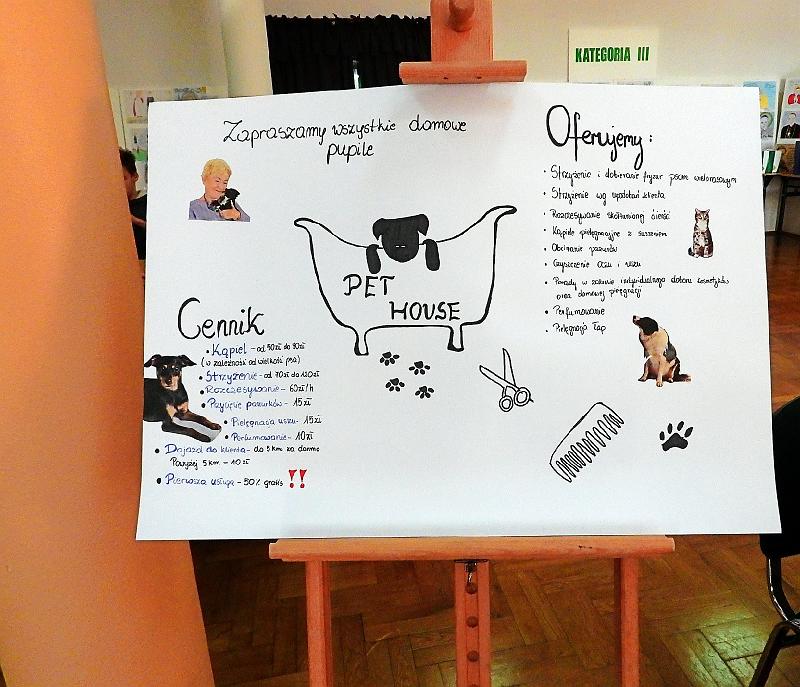 KATEGORIA III
Zapraszamy wszystkie domowe
pupile
PET
HOUSE
Oferujemy:
• Strzyżenie i dobieranie fryzur psom wielorasowym
• Strzyżenie wg upodobań klienta
• Rozczesywanie skołtunionej sierści
• Kąpiele pielęgnacyjne z suszeniem
• Obcinanie pazurków
• Czyszczenie oczu i uszu
• Porady w zakresie indywidualnego doboru kosmetyków
oraz domowej pielęgnacji
• Perfumowanie
• Pielęgnacja łap
Cennik
• Kąpiel - od 50zł do 90zł
(w zależność od wielkość psa)
• Strzyżenie - od 70zł do 120zł
• Rozczesywanie - 60zł/h
• Przycięcie pazurków - 15zł
• Pielęgnacja uszu - 15zł
• Perfumowanie - 10zł
• Dojazd do klienta - do 5km za darmo
Powyżej 5km - 10zł
• Pierwsza usługa - 50% gratis !!